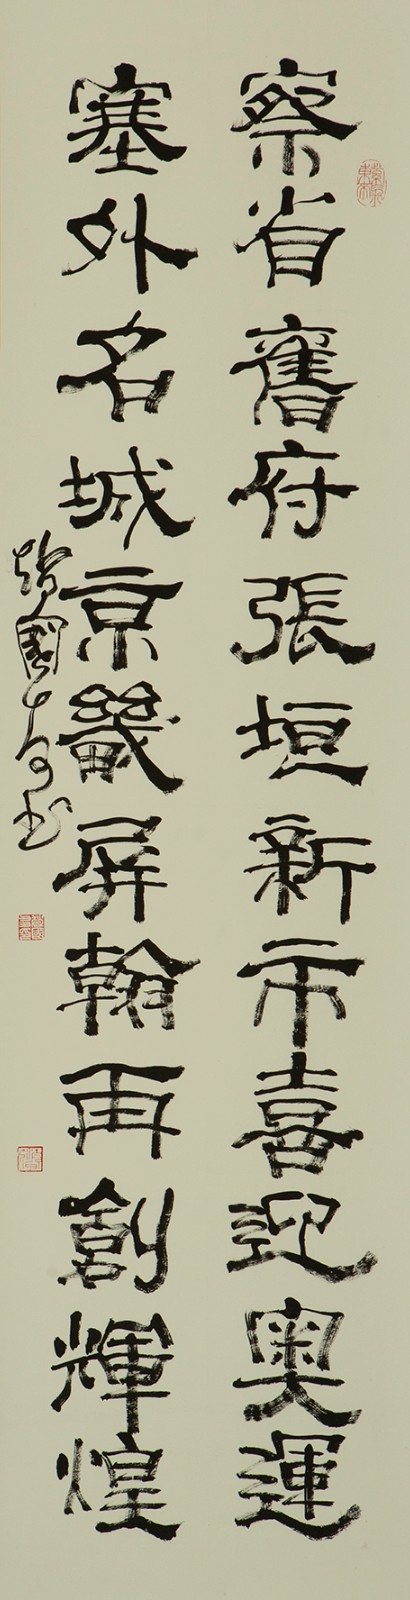 察省舊府張垣新市喜迎奧運
塞外名城京畿屏翰再創輝煌